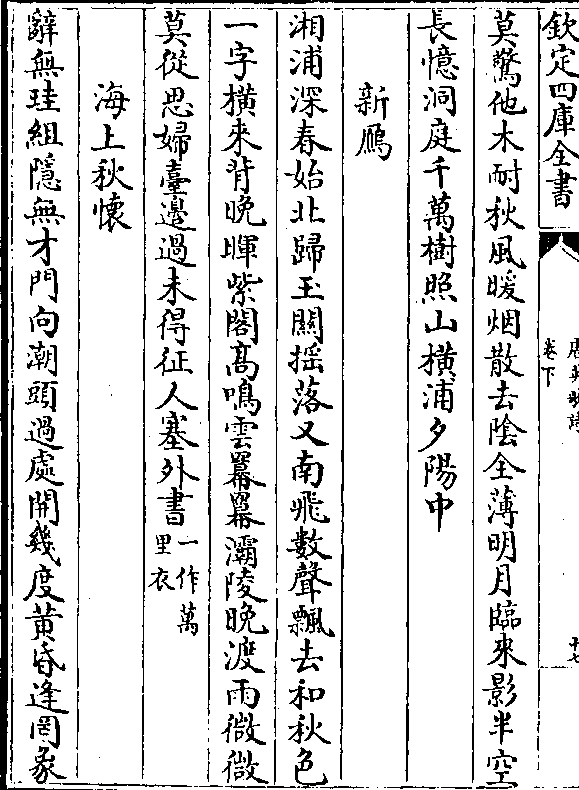 欽定四庫全書
卷下
莫驚他木耐秋風暖烟散去陰全薄明月臨來影半空
長憶洞庭千萬樹照山橫浦夕陽中
新鴈
湘浦深春始北歸玉關揺落又南飛數聲飄去和秋色
一字橫來背晚暉紫閣髙鳴雲羃羃灞陵晚渡雨微微
莫從思婦臺邉過未得征人塞外書一作萬里衣
海上秋懐
辭無珪組隱無才門向潮頭過處開幾度黄昏逢罔象